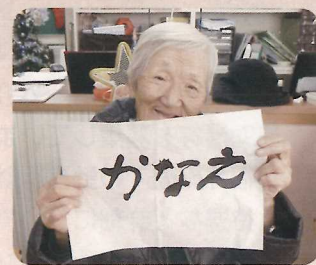 かなえ